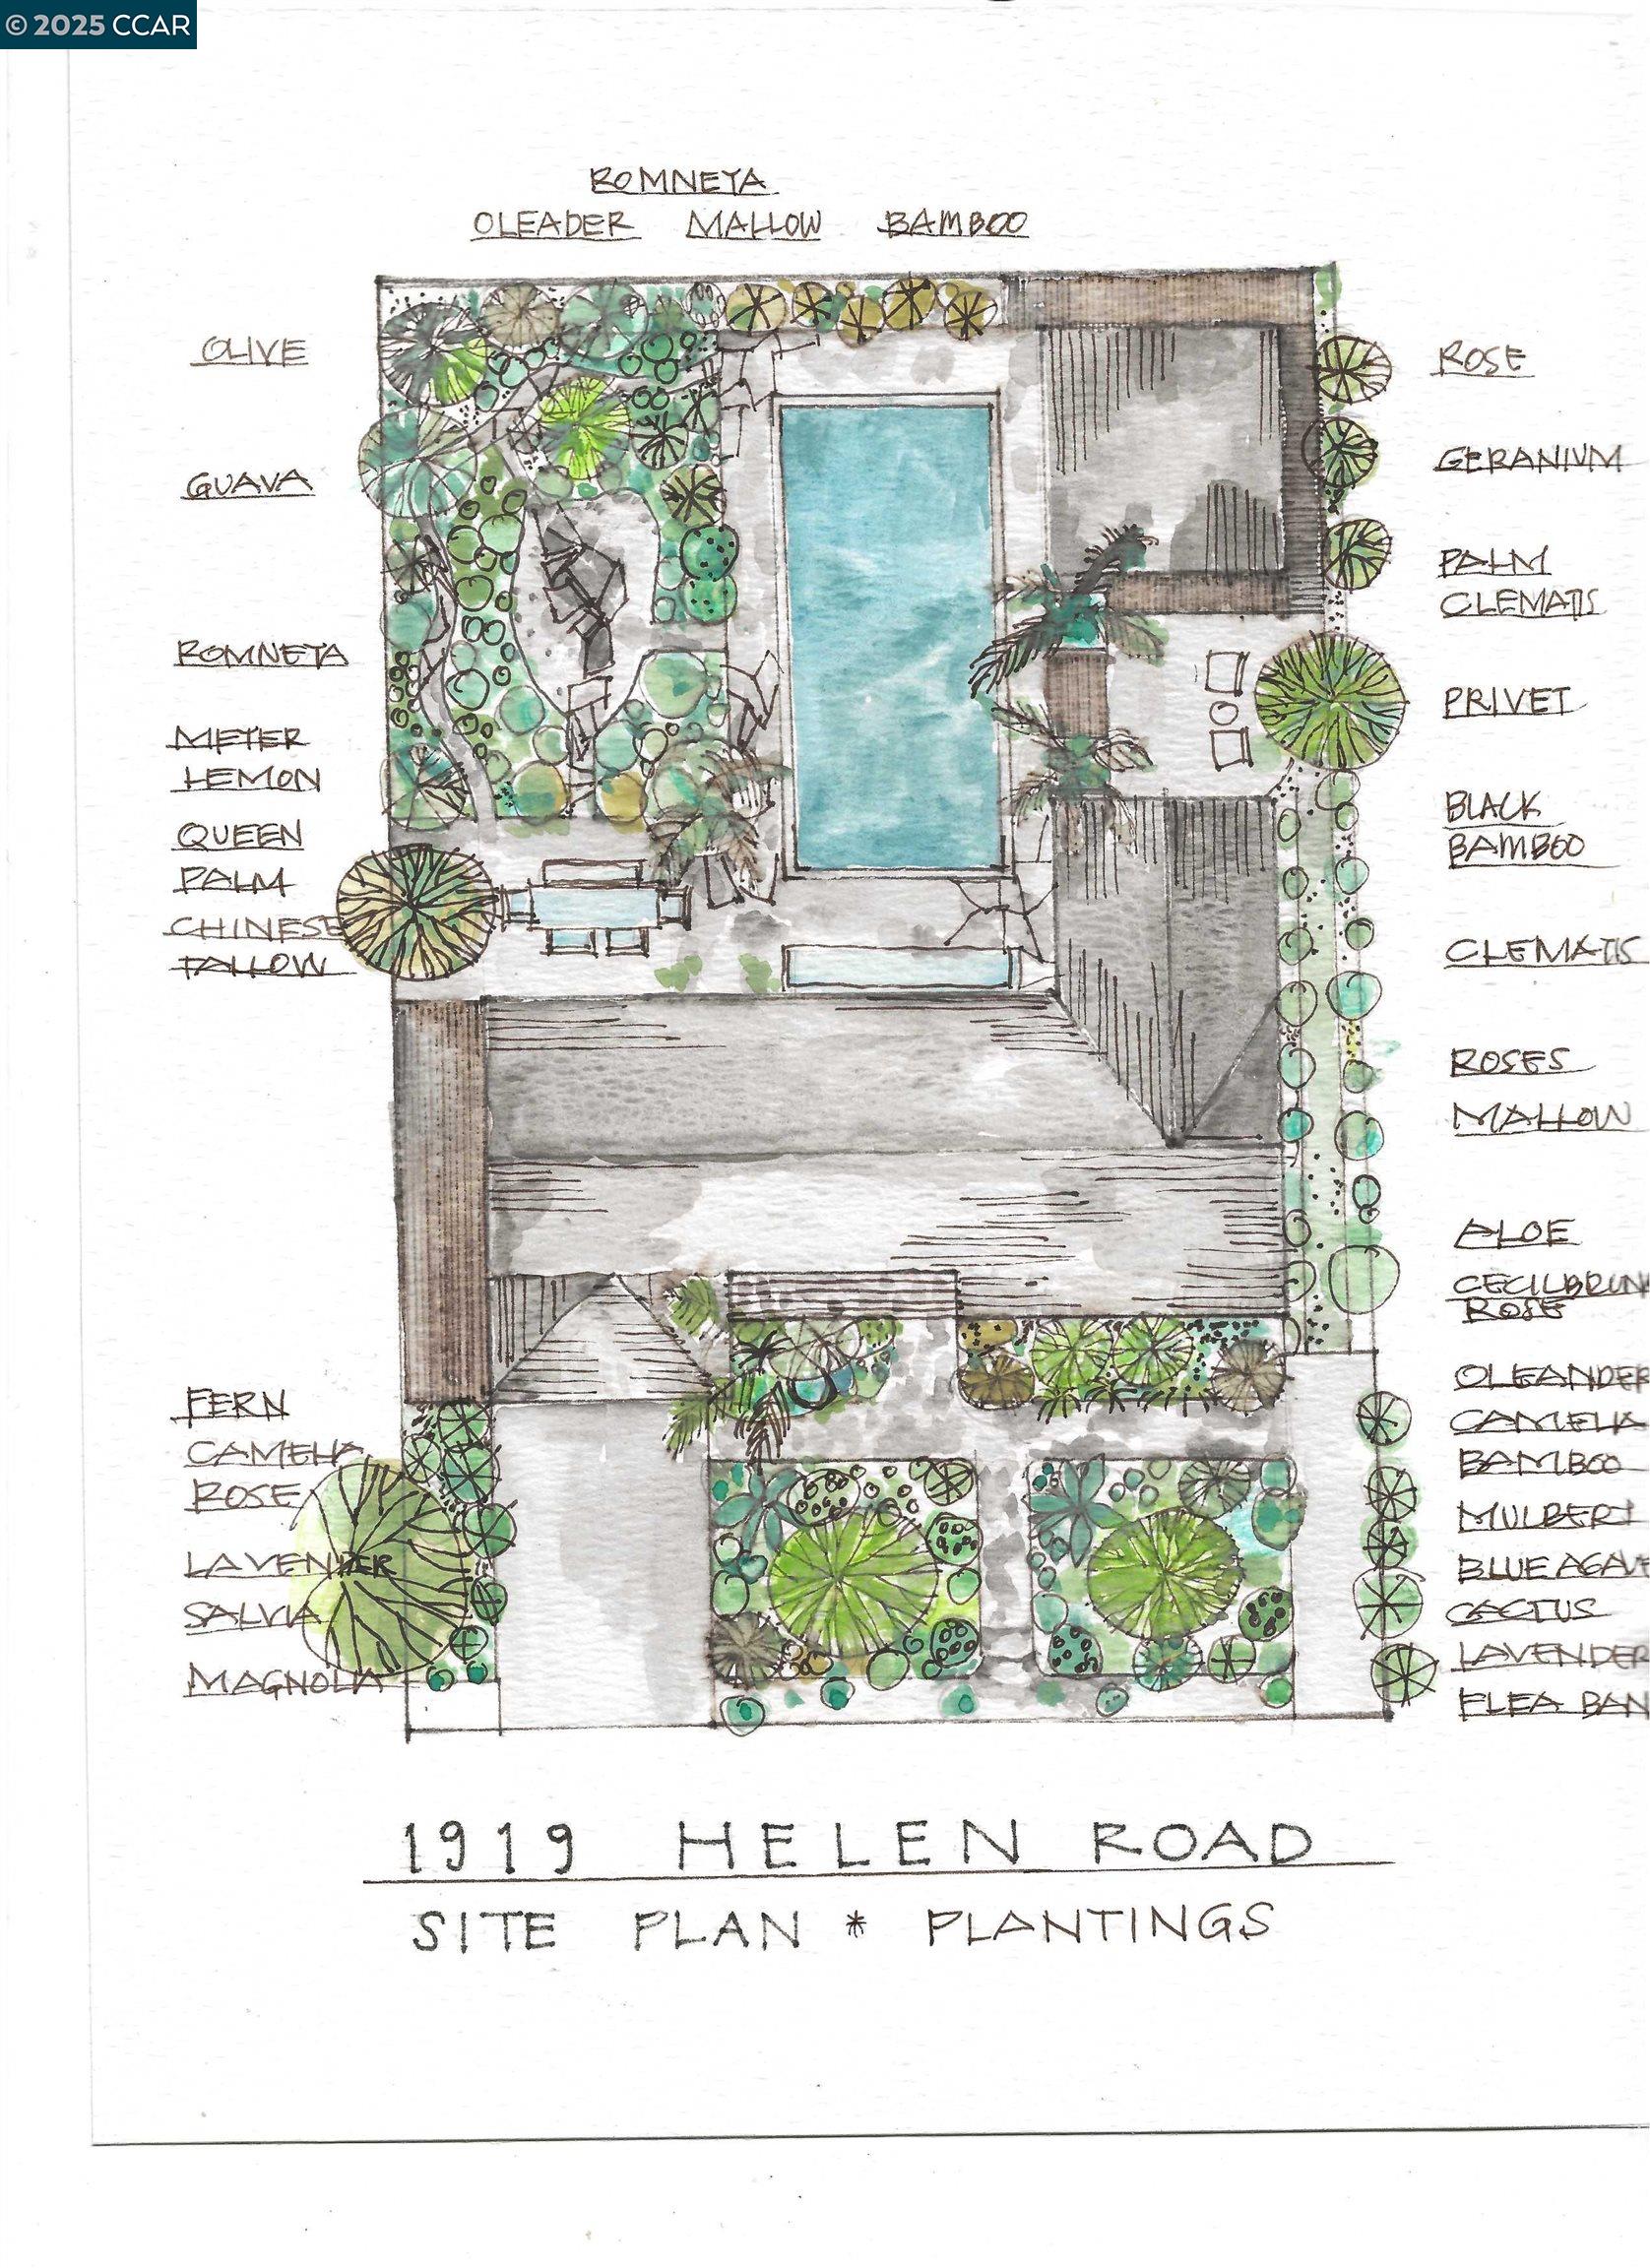 © 2025 CCAR
ROMNEYA
OLEADER MALLOW BAMBOO
OLIVE
GUAVA
ROMNETA
MEYER
LEMON
QUEEN
PALM
CHINESE
TALLOW
FERN
CAMELIA
ROSE
LAVENDER
SALVIA
MAGNOLIA
ROSE
GERANIUM
PALM
CLEMATIS
PRIVET
BLACK
BAMBOO
CLEMATIS
ROSES
MALLOW
ALOE
CECILBRUN
ROSE
OLEANDER
CAMELIA
BAMBOO
MULBERI
BLUE AGAV
CACTUS
LAVENDER
FLEA BAN
1919 HELEN ROAD
SITE PLAN * PLANTINGS